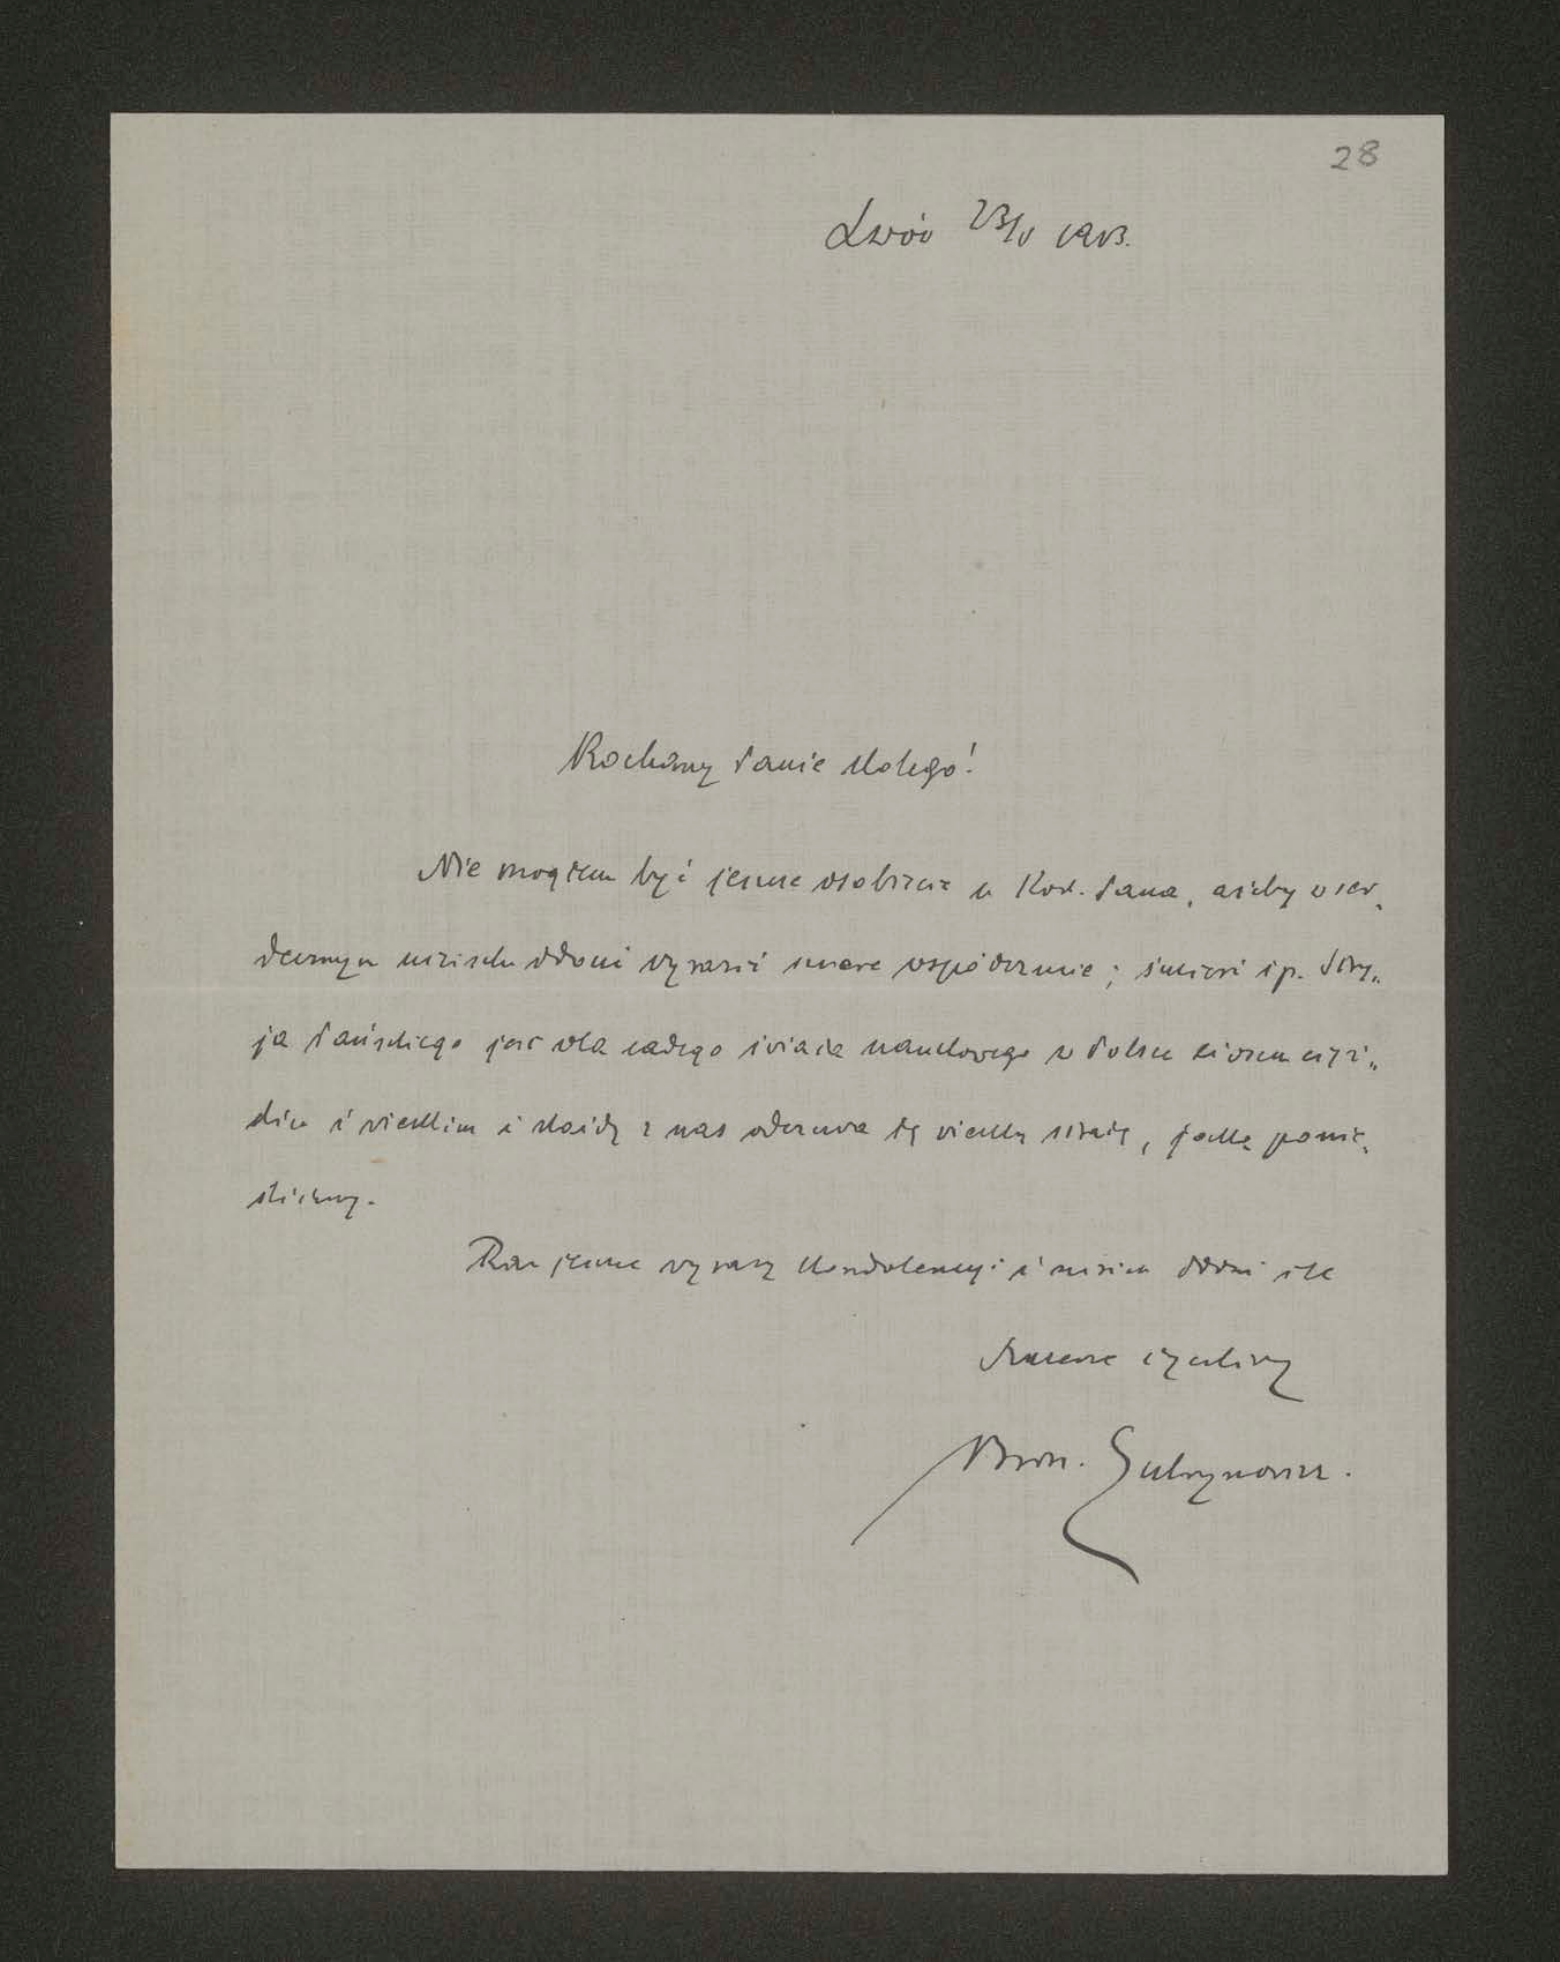 28
Lwów 23/V 1913.
Kochany Panie Kolego!
Nie mogłem być jeszcze osobiście u Koch. Pana, ażeby w ser-
decznym uścisku dłoni wyrazić szczere współczucie; śmierć śp. Stry-
ja Pańskiego jest dla całego świata naukowego w Polsce ciosem cięż-
kim i wielkim i każdy z nas odczuwa tę wielką stratę, jaką ponie-
śliśmy.
Raz jeszcze wyrazy kondolencyi i uścisk dłoni śle
szczerze życzliwy
Bron. Gubrynowicz.